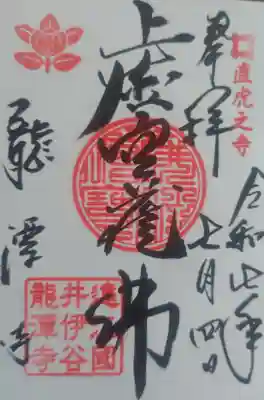 直虎之寺
奉拝
令和七年
七月四日
上虚空蔵佛
龍潭寺
遠江國
井伊谷
龍潭寺